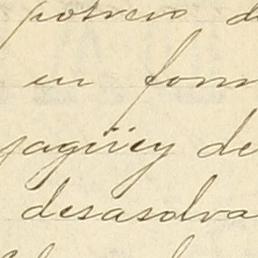 potrero d
en form
jagüey de
desasolva